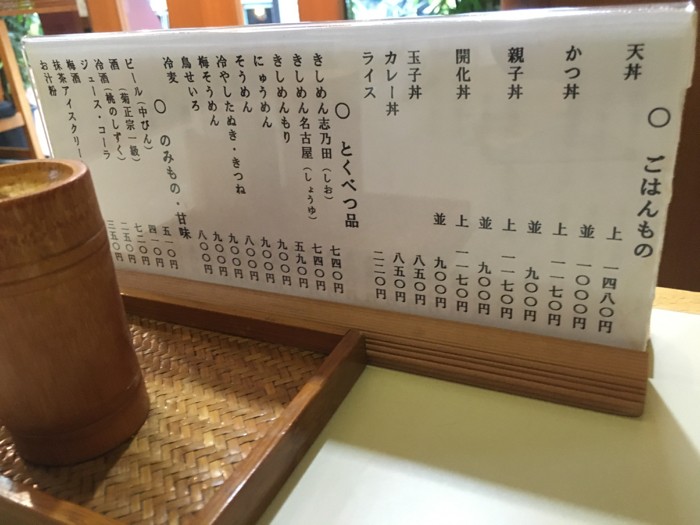 ○ ごはんもの
天丼 上 一四八〇円
並 一〇〇〇円
かつ丼 上 一一七〇円
並 九〇〇円
親子丼 上 一一七〇円
並 九〇〇円
開化丼 上 一一七〇円
並 九〇〇円
玉子丼 八五〇円
カレー丼 八五〇円
ライス 二二〇円
○ とくべつ品
きしめん志乃田（しお） 七四〇円
きしめん名古屋（しょうゆ） 七四〇円
きしめんもり 五九〇円
にゅうめん 九〇〇円
そうめん 九〇〇円
冷やしたぬき・きつね 八〇〇円
梅そうめん 九〇〇円
鳥せいろ 九〇〇円
冷麦 八〇〇円
○ のみもの・甘味
ビール（中びん） 五一〇円
酒（菊正宗一級） 四一〇円
冷酒（桃のしずく） 七二〇円
ジュース・コーラ 二五〇円
梅酒 三五〇円
抹茶アイスクリー
お汁粉